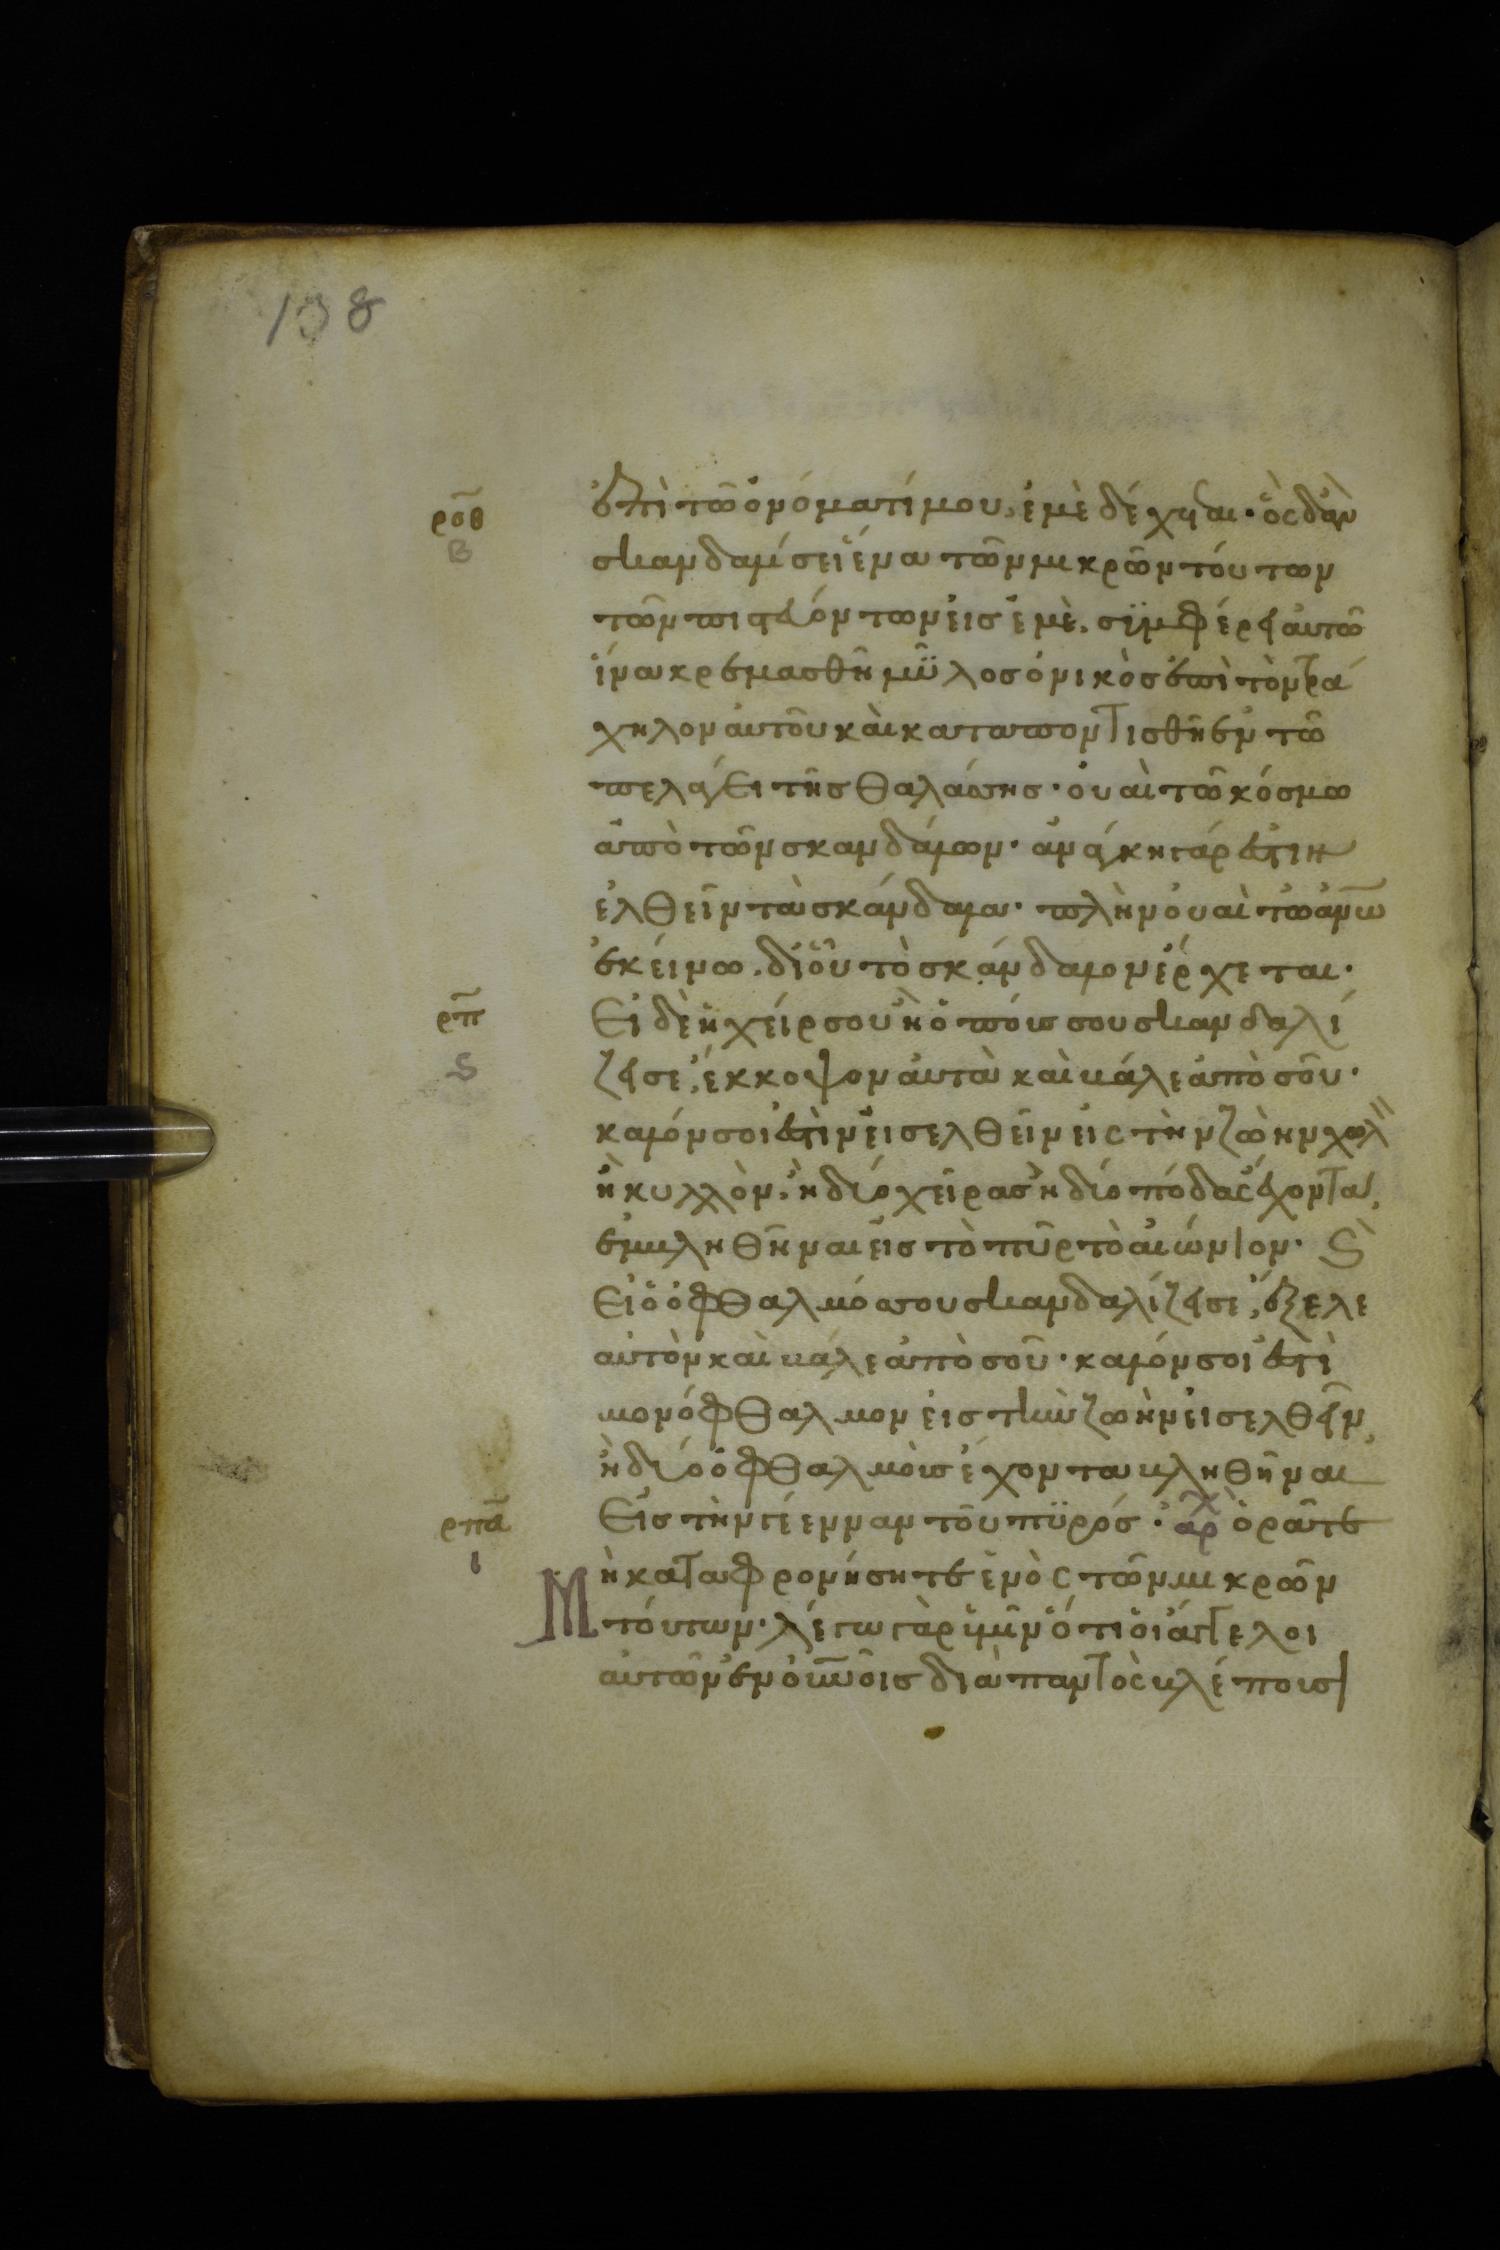 138
ἐπὶ τῶ ὀνόματί μου, ἐμὲ δέχεται· ὃς δ' ἂν
ροθ
β
σκανδαλίσει ἕνα τῶν μικρῶν τούτων
τῶν πιστευόντων εἰς ἐμὲ, συμφέρει αὐτῶ
ἵνα κρεμασθῆ μύλος ὀνικὸς ἐπὶ τὸν τρά
χηλον αὐτοῦ καὶ καταποντισθῆ ἐν τῶ
πελάγει τῆς θαλάσσης· οὐαὶ τῶ κόσμω
ἀπὸ τῶν σκανδάλων· ἀνάγκη γάρ ἐστιν
ἐλθεῖν τὰ σκάνδαλα· πλὴν οὐαὶ τῶ ἀνω
ἐκείνω, δι' οὗ τὸ σκάνδαλον ἔρχεται·
ρπ
Εἰ δὲ ἡ χείρ σου ἢ ὁ πούς σου σκανδαλί
ς
ζει σε, ἔκκοψον αὐτὰ καὶ βάλε ἀπὸ σοῦ·
καλόν σοι ἐστὶν εἰσελθεῖν εἰς τὴν ζωὴν χωλ
ἢ κυλλὸν, ἢ δύο χεῖρας ἢ δύο πόδας ἔχοντα,
βληθῆναι εἰς τὸ πῦρ τὸ αἰώνιον· ϛ
Εἰ ὁ ὀφθαλμός σου σκανδαλίζει σε, ἔξελε
αὐτὸν καὶ βάλε ἀπὸ σοῦ· καλόν σοι ἐστὶ
μονόφθαλμον εἰς τὴν ζωὴν εἰσελθεῖν,
ἢ δύο ὀφθαλμοὺς ἔχοντα βληθῆναι
ρπα
Εἰς τὴν γέενναν τοῦ πυρός· ἀρχ ὁρᾶτε
ι
Μὴ καταφρονήσητε ἑνὸς τῶν μικρῶν
τούτων· λέγω γὰρ ὑμῖν ὅτι οἱ ἄγγελοι
αὐτῶν ἐν οὐνοῖς διὰ παντὸς βλέπουσι